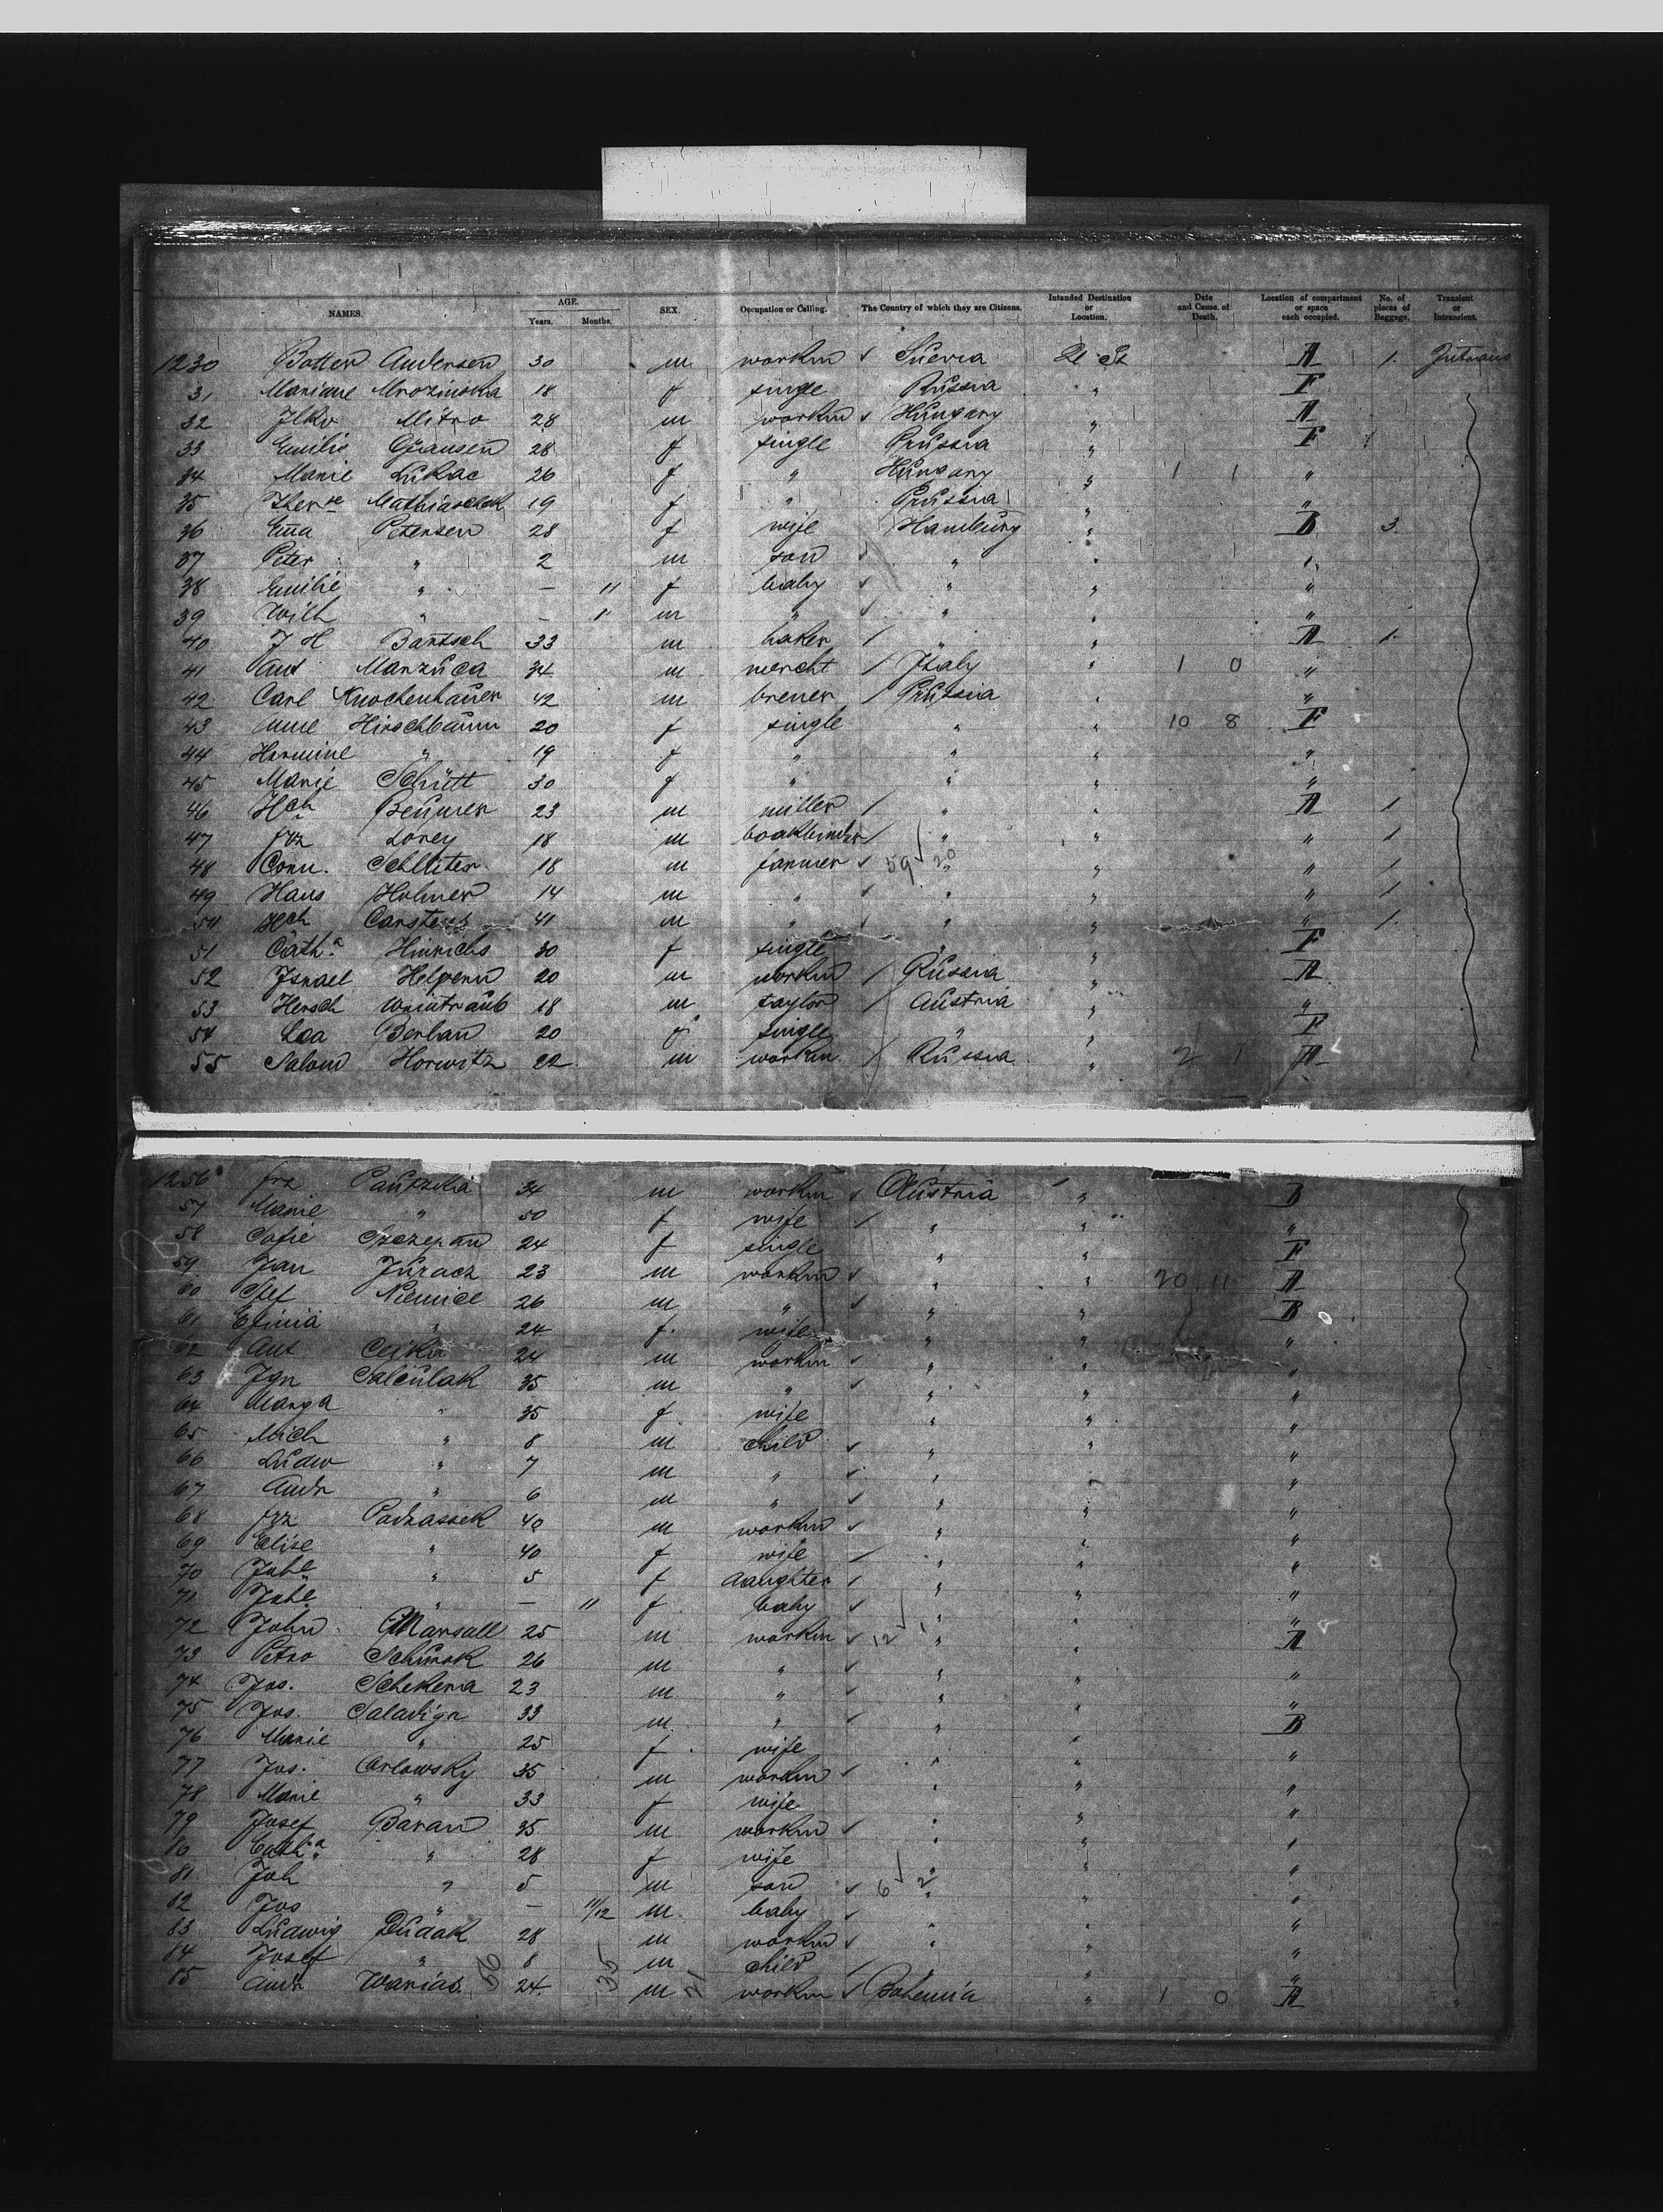 NAMES. AGE. Years. Months. SEX. Occupation or Calling. The Country of which they are Citizens. Intended Destination or Location. Date and Cause of Death. Location of compartment or space each occupied. No. of pieces of Baggage. Transient or Intransient.
1230 Botter Andersen 30 m workm Suecia U St A 1. Intrans
31 Mariane Mrozinska 18 f single Russia " F
32 Ilko Mitro 28 m workm Hungary " A
33 Emilie Gransen 28 f single Prussia " F 1
34 Marie Lukac 26 f " Hungary " 1 1 "
35 Therse Mathiaschek 19 f " Prussia " "
36 Ema Petersen 28 f wife Hamburg " B 3.
37 Peter " 2 m son " " "
38 Emilie " — 11 f baby " " "
39 Wilh " — 11 m " " " "
40 J H Bartsch 33 m baker " " A 1.
41 Ant Manzuca 34 m mercht Italy " 1 0 "
42 Carl Knochenhauer 42 m brener Prussia " "
43 Anne Hirschbaum 20 f single " " 10 8 F
44 Hermine " 19 f " " " "
45 Marie Schütt 30 f " " " "
46 Hch Beumer 23 m miller " " A 1
47 Frz Lorey 18 m bookbinder " " " 1
48 Conr. Schlliter 18 m farmer 59 20 " " 1
49 Hans Holmer 14 m " " " " 1
50 Hch Carstens 41 m " " " " 1.
51 Catha Hinrichs 30 f single " " F
52 Israel Helpern 20 m workm Russia " A
53 Hersch Weintraub 18 m taylor Austria " "
54 Lea Berban 20 f single " " F
55 Salom Horwitz 22 m workm. Russia " 2 1 A
1256 Frz Pauczka 34 m workm Austria " B
57 Marie " 50 f wife " " "
58 Sofie Szczepan 24 f single " " F
59 Jan Juracz 23 m workm " " 20 11 A
60 Stef Niemice 26 m " " " B
61 Efinia " 24 f. wife " " "
62 Ant Cejka 24 m workm " " "
63 Ign Salculak 35 m " " " "
64 Marga " 35 f wife " " "
65 Mich " 8 m child " " "
66 Ludw " 7 m " " " "
67 Andr " 6 m " " " "
68 Frz Padrassek 40 m workm " " "
69 Elise " 40 f wife " " "
70 Johe " 5 f daughter " " "
71 Johe " — 11 f baby " " "
72 John Marsall 25 m workm 12 1 " " A
73 Petro Schurok 26 m " " " "
74 Jos. Schekera 23 m " " " "
75 Jos. Saladiga 33 m " " " B
76 Marie " 25 f wife " " "
77 Jos. Orlowsky 35 m workm " " "
78 Marie " 33 f wife " " "
79 Josef Baran 35 m workm " " "
80 Catha " 28 f wife " " "
81 Joh " 5 m son 6 2 " " "
82 Jos " — 11/12 m baby " " "
83 Ludwig Dudak 28 m workm " " "
84 Josef " 8 m child " " "
85 Andr Wanias. 56 24 35 m 21 workm Bohemia " 1 0 A